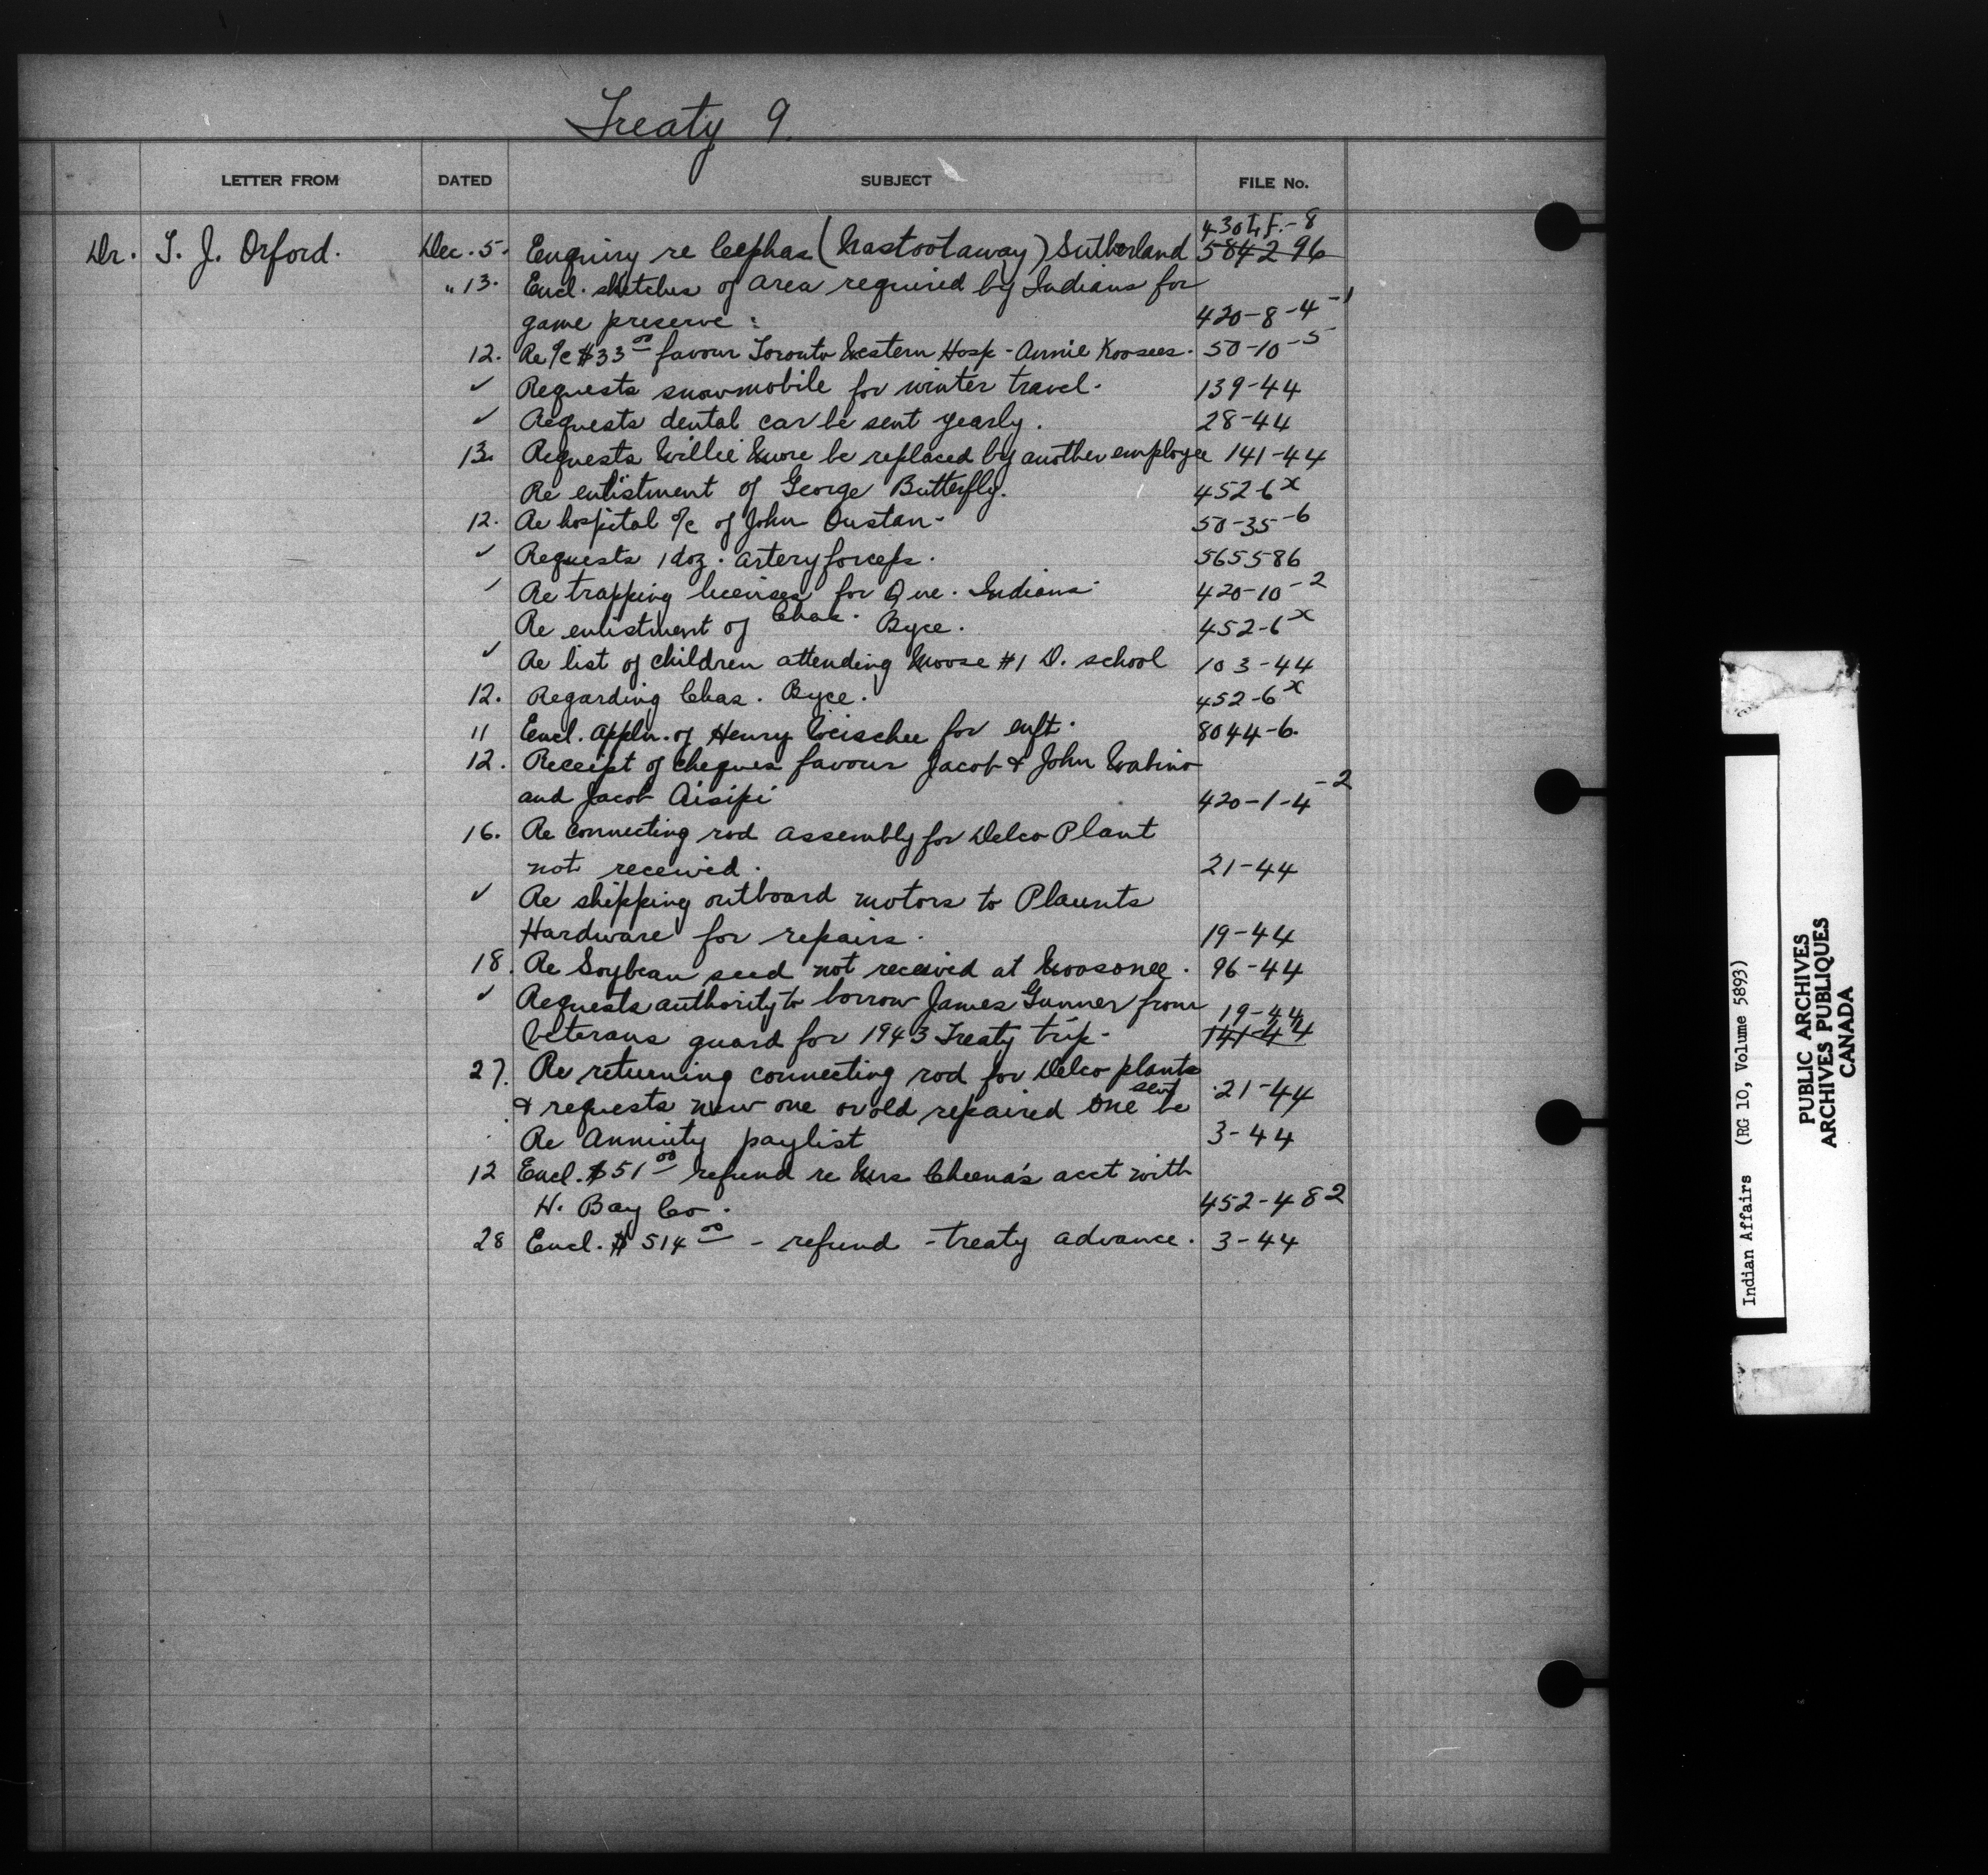 Treaty 9.
LETTER FROM DATED SUBJECT FILE No.
430 F.-8
Dr. T. J. Orford. Dec. 5. Enquiry re Cephas (Nastootaway) Sutherland 584296
" 13. Encl. sketches of area required by Indians for
game preserve: 420-8-4-1
12. Re a/c $33.00 favour Toronto Western Hosp - Annie Koosees. 50-10-5
✓ Requests snowmobile for winter travel. 139-44
✓ Requests dental car be sent yearly. 28-44
13. Requests Willie be replaced by another employee 141-44
Re enlistment of George Butterfly. 452-6x
12. Re hospital a/c of John Oustan- 50-35-6
✓ Requests 1 doz. artery forceps. 565586
✓ Re trapping licenses for Que. Indians 420-10-2
Re enlistment of Chas. Byce. 452-6x
✓ Re list of children attending Moose #1 D. school 103-44
12. Regarding Chas. Byce. 452-6x
11 Encl. appln. of Henry for enft. 8044-6.
12. Receipt of cheques favour Jacob & John Wabino
and Jacob Aisipi 420-1-4-2
16. Re connecting rod assembly for Delco Plant
not received. 21-44
✓ Re shipping outboard motors to Plaunts
Hardware for repairs. 19-44
18. Re Soybean seed not received at Moosonee. 96-44
✓ Requests authority to borrow James Gunner from 19-44
Veterans guard for 1943 Treaty trip- 141-44
27. Re returning connecting rod for Delco plants
& requests new one or old repaired one sent be 21-44
Re Annuity paylist 3-44
12 Encl. $51.00 refund re Mrs Cheena's acct with
H. Bay Co. 452-482
28 Encl. $514.00 - refund - treaty advance. 3-44
Indian Affairs (RG 10, Volume 5893)
PUBLIC ARCHIVES
ARCHIVES PUBLIQUES
CANADA